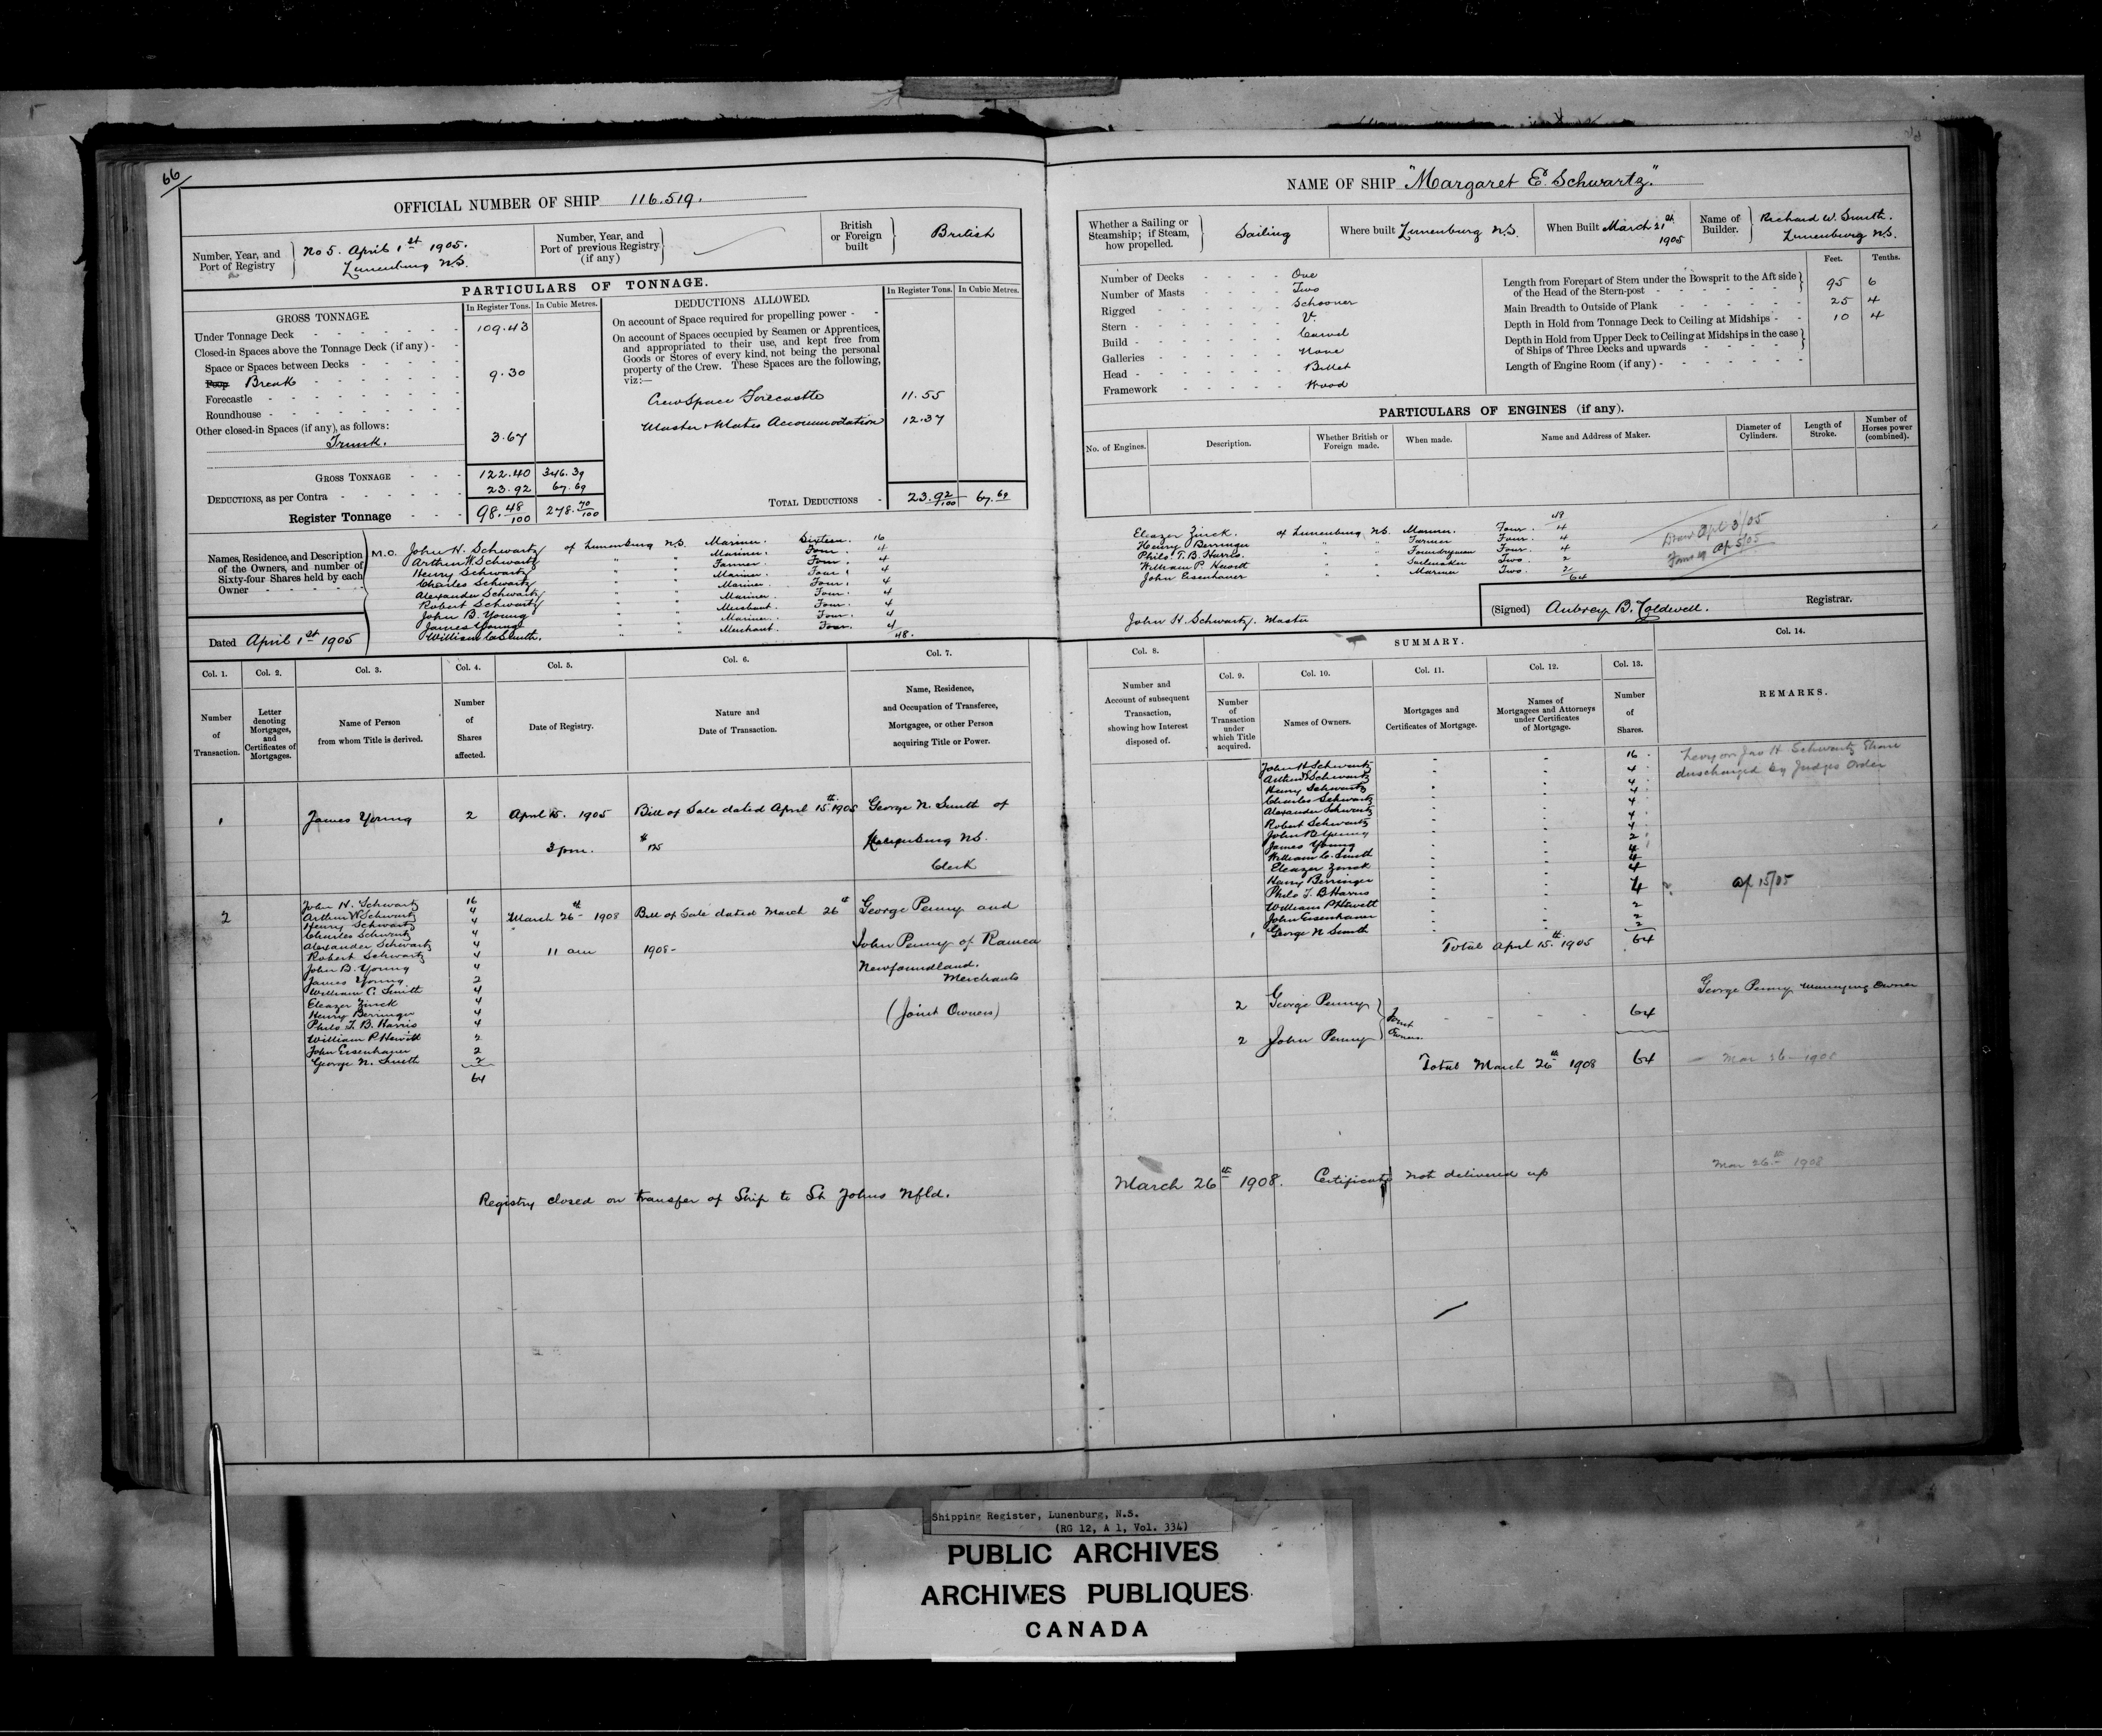 66
OFFICIAL NUMBER OF SHIP 116.519.
Number, Year, and Port of Registry } No 5. April 1st 1905. Lunenburg N.S.
Number, Year, and Port of previous Registry (if any) }
British or Foreign built } British
PARTICULARS OF TONNAGE.
GROSS TONNAGE.
In Register Tons. In Cubic Metres.
Under Tonnage Deck 109.43
Closed-in Spaces above the Tonnage Deck (if any) -
Space or Spaces between Decks
Poop Break 9.30
Forecastle
Roundhouse
Other closed-in Spaces (if any), as follows:
Trunk. 3.67
GROSS TONNAGE 122.40 346.39
DEDUCTIONS, as per Contra 23.92 67.69
Register Tonnage 98.48/100 278.70/100
DEDUCTIONS ALLOWED.
In Register Tons. In Cubic Metres.
On account of Space required for propelling power -
On account of Spaces occupied by Seamen or Apprentices,
and appropriated to their use, and kept free from
Goods or Stores of every kind, not being the personal
property of the Crew. These Spaces are the following,
viz:—
Crew Space Forecastle 11.55
Master & Mates Accommodation 12.37
TOTAL DEDUCTIONS 23.92/100 67.69
Names, Residence, and Description of the Owners, and number of Sixty-four Shares held by each Owner
M.O. John H. Schwartz of Lunenburg N.S. Mariner. Sixteen. 16
Arthur W. Schwartz " " Mariner. Four. 4
Henry Schwartz " " Farmer. Four. 4
Charles Schwartz " " Mariner. Four. 4
Alexander Schwartz " " Mariner. Four. 4
Robert Schwartz " " Mariner. Four. 4
John B. Young " " Merchant. Four. 4
James Young " " Mariner. Four. 4
William C. Smith. " " Merchant. Four. 4
48.
Dated April 1st 1905
Col. 1. Col. 2. Col. 3. Col. 4. Col. 5. Col. 6. Col. 7.
Number of Transaction.
Letter denoting Mortgages, and Certificates of Mortgages.
Name of Person from whom Title is derived.
Number of Shares affected.
Date of Registry.
Nature and Date of Transaction.
Name, Residence, and Occupation of Transferee, Mortgagee, or other Person acquiring Title or Power.
1 James Young 2 April 15. 1905 Bill of Sale dated April 15th 1905 George N. Smith of
3 pm. $125 Lunenburg N.S.
Clerk
2 John H. Schwartz 16
Arthur W. Schwartz 4
Henry Schwartz 4
Charles Schwartz 4
Alexander Schwartz 4
Robert Schwartz 4
John B. Young 4
James Young 2
William C. Smith 4
Eleazer Zinck 4
Henry Berringer 4
Philo T. B. Harris 4
William P. Hewitt 2
John Eisenhauer 2
George N. Smith 2
64
March 26th 1908 11 am
Bill of Sale dated March 26th 1908-
George Penny and
John Penny of Ramea
Newfoundland.
Merchants
(Joint Owners)
Registry closed on transfer of Ship to St Johns Nfld.
NAME OF SHIP "Margaret E. Schwartz."
Whether a Sailing or Steamship; if Steam, how propelled. } Sailing
Where built Lunenburg N.S.
When Built March 21st 1905
Name of Builder. } Richard W. Smith. Lunenburg N.S.
Number of Decks One
Number of Masts Two
Rigged Schooner
Stern V.
Build Carvel
Galleries None
Head Billet
Framework Wood
Feet. Tenths.
Length from Forepart of Stem under the Bowsprit to the Aft side of the Head of the Stern-post 95 6
Main Breadth to Outside of Plank 25 4
Depth in Hold from Tonnage Deck to Ceiling at Midships 10 4
Depth in Hold from Upper Deck to Ceiling at Midships in the case of Ships of Three Decks and upwards
Length of Engine Room (if any)
PARTICULARS OF ENGINES (if any).
No. of Engines. Description. Whether British or Foreign made. When made. Name and Address of Maker. Diameter of Cylinders. Length of Stroke. Number of Horses power (combined).
48
Eleazer Zinck. of Lunenburg N.S. Mariner. Four. 4
Henry Berringer " " Farmer Four. 4
Philo. T. B. Harris. " " Foundryman Four. 4
William P. Hewitt " " Sailmaker Two. 2
John Eisenhauer " " Mariner Two. 2
64
John H. Schwartz. Master
(Signed) Aubrey B. Caldwell. Registrar.
SUMMARY.
Col. 8. Col. 9. Col. 10. Col. 11. Col. 12. Col. 13. Col. 14.
Number and Account of subsequent Transaction, showing how Interest disposed of.
Number of Transaction under which Title acquired.
Names of Owners.
Mortgages and Certificates of Mortgage.
Names of Mortgagees and Attorneys under Certificates of Mortgage.
Number of Shares.
REMARKS.
John H Schwartz 16
Arthur W Schwartz 4
Henry Schwartz 4
Charles Schwartz 4
Alexander Schwartz 4
Robert Schwartz 4
John B Young 4
James Young 2
William C. Smith 4
Eleazer Zinck 4
Henry Berringer 4
Philo T. B Harris 4
William P Hewitt 2
John Eisenhauer 2
1 George N Smith 2
Total April 15th 1905 64
Levy on Jno H. Schwartz Share
discharged by Judges Order
Ap 15/05
2 George Penny } Joint
2 John Penny } Owners.
64
Total March 26th 1908 64
George Penny Managing Owner
Mar 26 - 1908
March 26th 1908. Certificate not delivered up
Mar 26th 1908
Shipping Register, Lunenburg, N.S.
(RG 12, A 1, Vol. 334)
PUBLIC ARCHIVES
ARCHIVES PUBLIQUES
CANADA